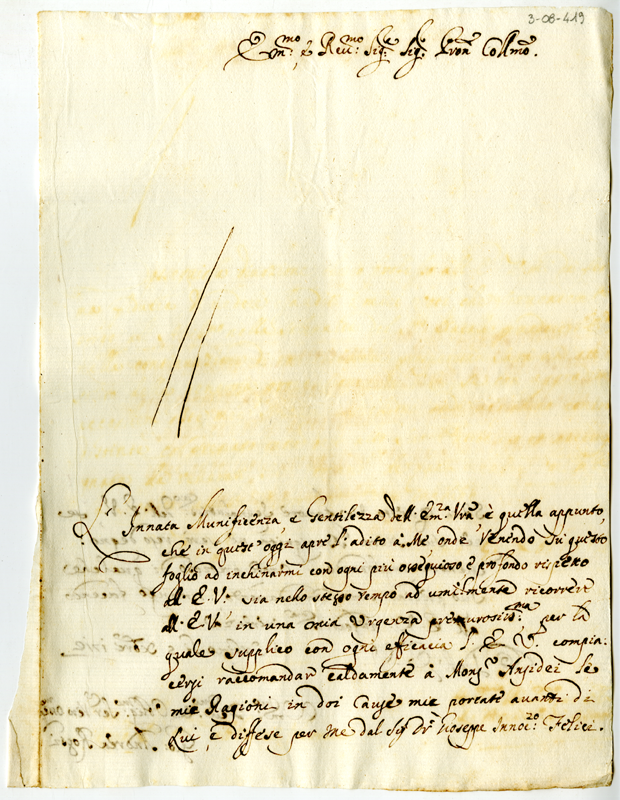 3-08-419
Em:mo e Rev:mo Sig:re Sig:re Pron Collmo.
L'Innata Munificenza, e Gentilezza dell'Em:za Vra è quella appunto,
che in quest'oggi apre l'adito à Me onde Venendo Sù questo
foglio ad inchinarmi con ogni più ossequioso e profondo rispetto
all'E.V. sia nello stesso tempo ad umilmente ricorrere
all'E.V. in una mia Urgenza premurosiss:ma per la
quale supplico con ogni efficacia l'E.V. compia:
cersi raccomandar caldamente à Mons:r Ansidei le
mie Ragioni in doi Cause mie portate avanti di
Lui, e difese per me dal Sig:r Dr Gioseppe Innoc:zo Felici.